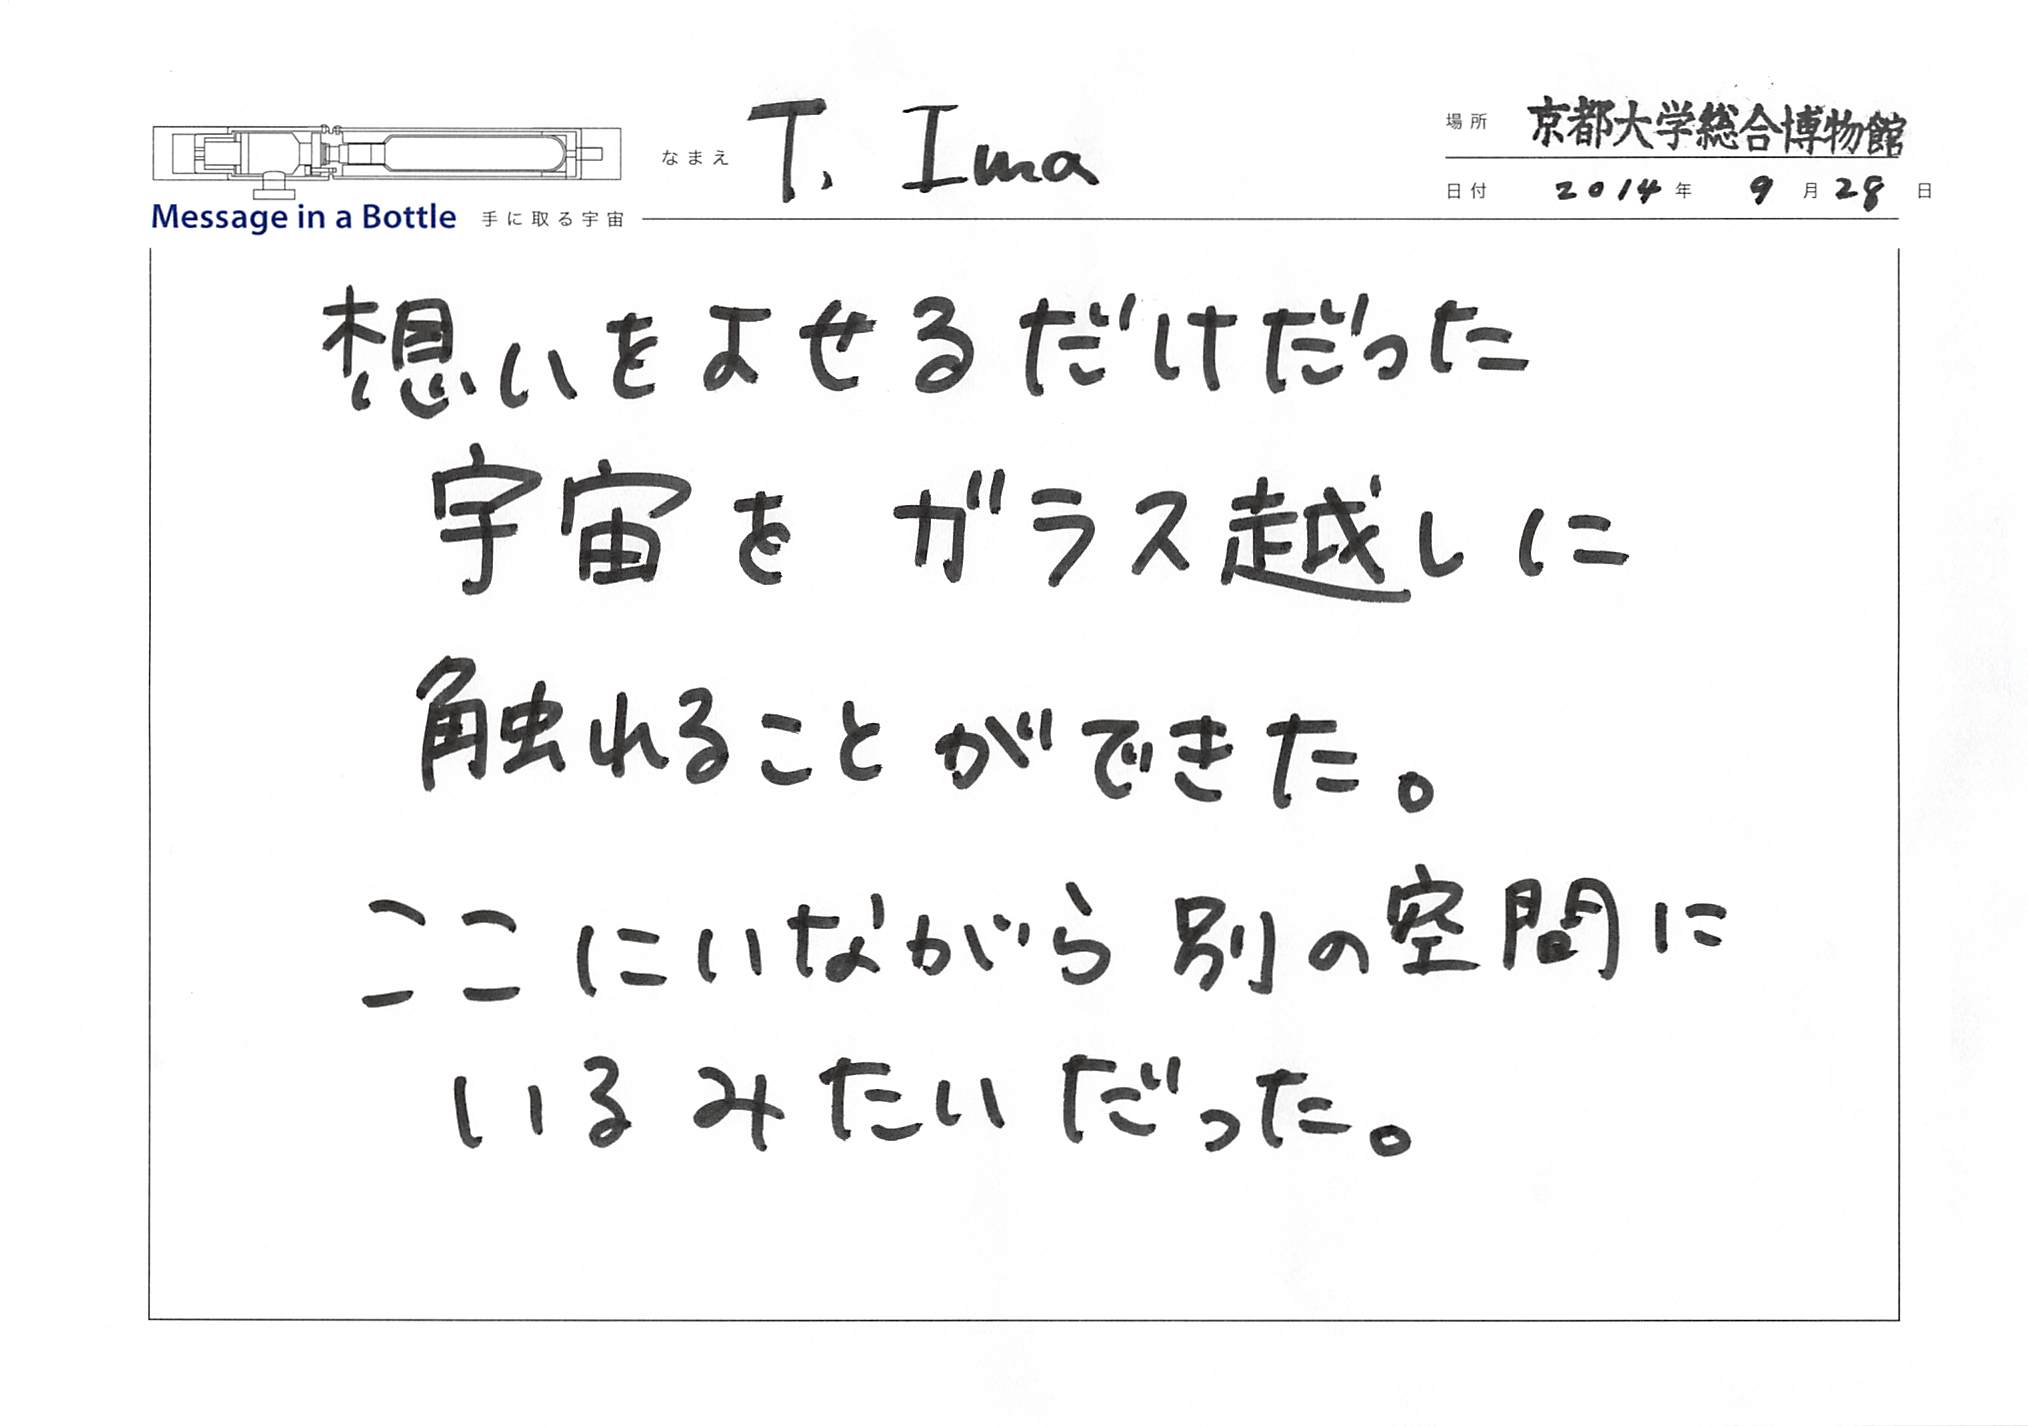 なまえ T. Ima
場所 京都大学総合博物館
日付 2014年 9月28日
Message in a Bottle 手に取る宇宙
想いをよせるだけだった
宇宙を ガラス越しに
触れることができた。
ここにいながら 別の空間に
いるみたいだった。